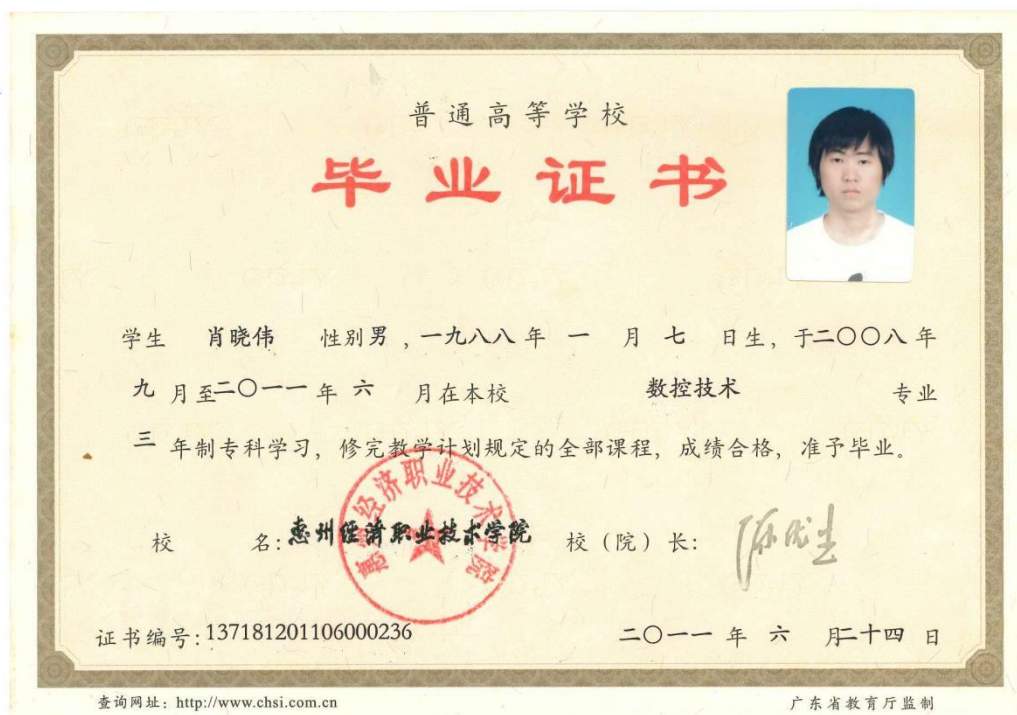 普通高等学校
毕业证书
学生 肖晓伟 性别男，一九八八年 一 月 七 日生，于二〇〇八年
九月至二〇一一年 六 月在本校 数控技术 专业
三 年制专科学习，修完教学计划规定的全部课程，成绩合格，准予毕业。
惠州经济职业技术学院
校 名：惠州经济职业技术学院 校（院）长：
证书编号：137181201106000236 二〇一一年 六 月二十四日
查询网址：http://www.chsi.com.cn 广东省教育厅监制